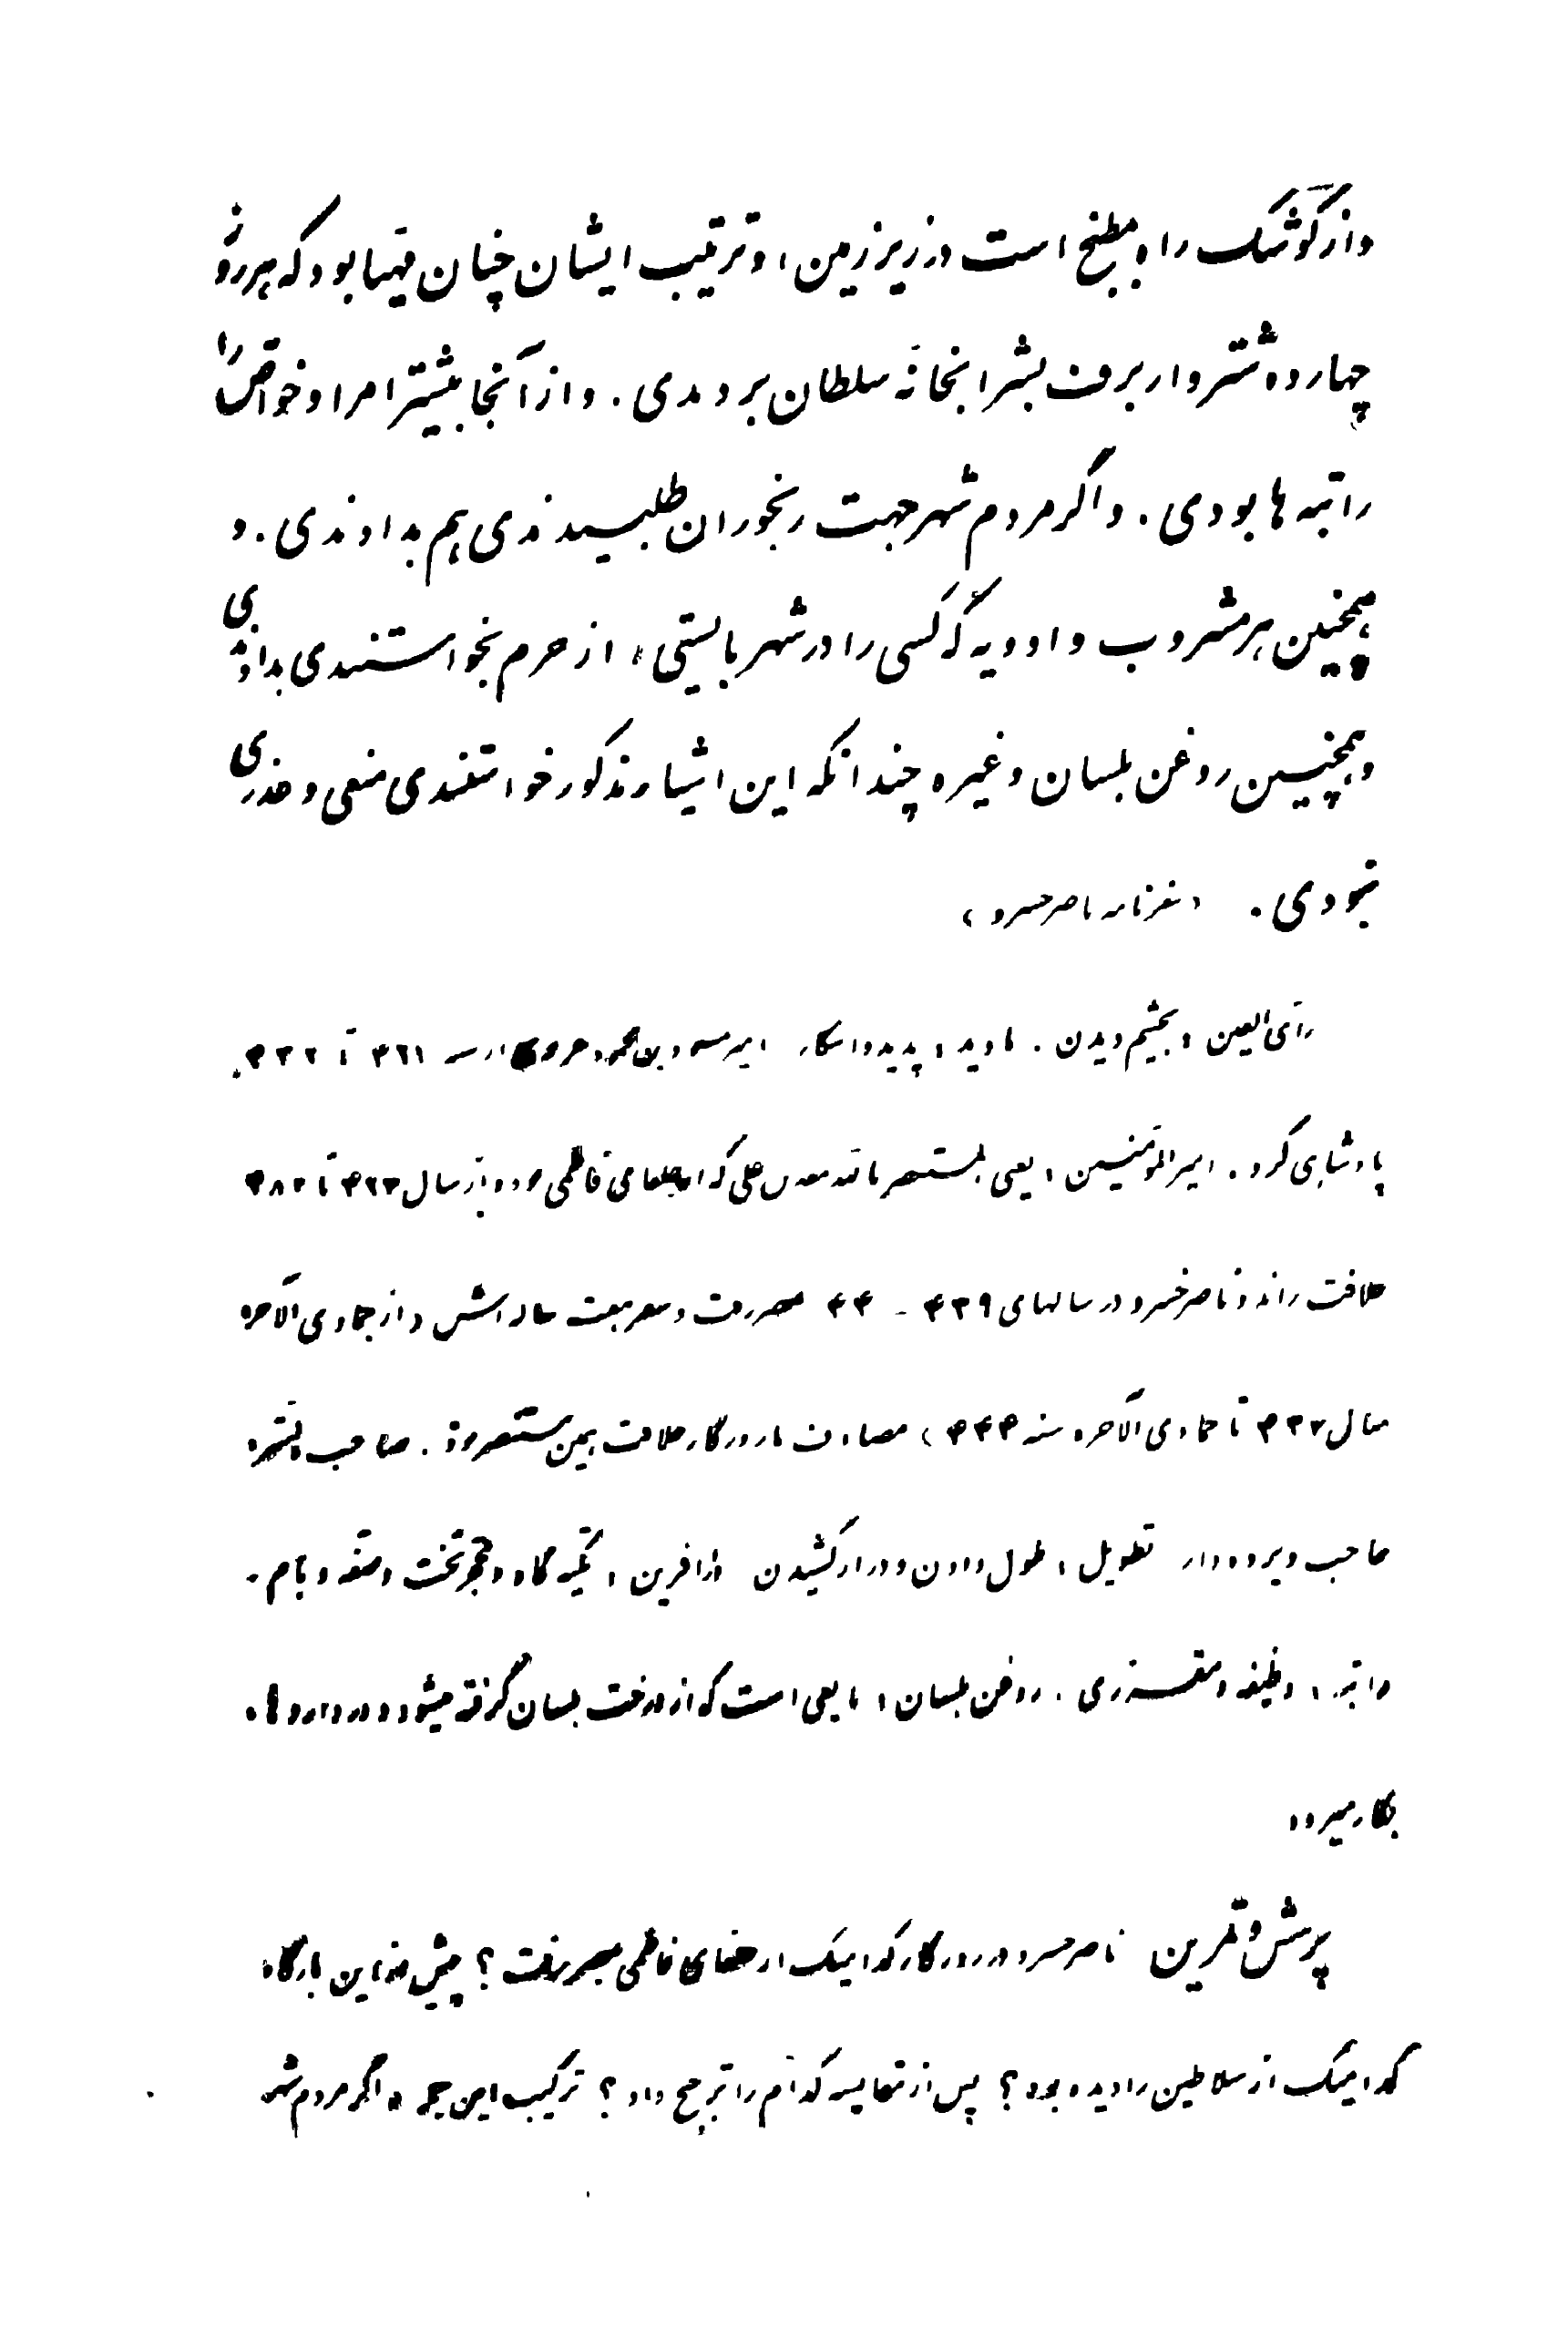 و از کوشک راه بمطبخ است در زیر زمین، و ترتیب ایشان چنان مهیا بود که هر روز
چهارده شتروار برف بشرابخانهٔ سلطان بردندی. و از آنجا بیشتر امرا و خواص را
راتبه ها بودی. و اگر مردم شهر جهت رنجوران طلبیدندی هم بدادندی. و
همچنین هر مشروب و ادویه که کسی را در شهر بایستی، از حرم بخواستندی بدادندی
و همچنین روغن بلسان و غیره چندانکه این اشیاء مذکور خواستندی منعی و عذری
نبودی. (سفرنامه ناصر خسرو)
رأی العین، بچشم دیدن. پدید، پدید و آشکار امیر مسعود بن محمود از ۴۲۱ تا ۴۳۲
پادشاهی کرد. امیرالمؤمنین، یعنی المستنصر بالله معد بن علی که از خلفای فاطمی بود و از سال ۴۲۷ تا ۴۸۷
خلافت راند و ناصر خسرو در سالهای ۴۳۹ - ۴۴ بمصر رفت و سفر هفت ساله اش (از جمادی الآخره
سال ۴۳۷ تا جمادی الآخره سنه ۴۴۴) مصادف با روزگار خلافت همین مستنصر بود. صاحب ستر،
حاجب و پرده دار تطویل، طول دادن و دراز کشیدن دارافزین، تکیه گاه و محجر تخت و صفه و بام.
راتبه، وظیفه و مقرری. روغن بلسان، مایعی است که از درخت بلسان گرفته میشود و در داروها
بکار میرود
پرسش و تمرین ناصر خسرو در روزگار کدامیک از خلفای فاطمی بمصر رفت؟ پیش از این بارگاه
کدامیک از سلاطین را دیده بود؟ پس از مقایسه کدام را ترجیح داد؟ ترکیب این جمله اگر مردم شهر